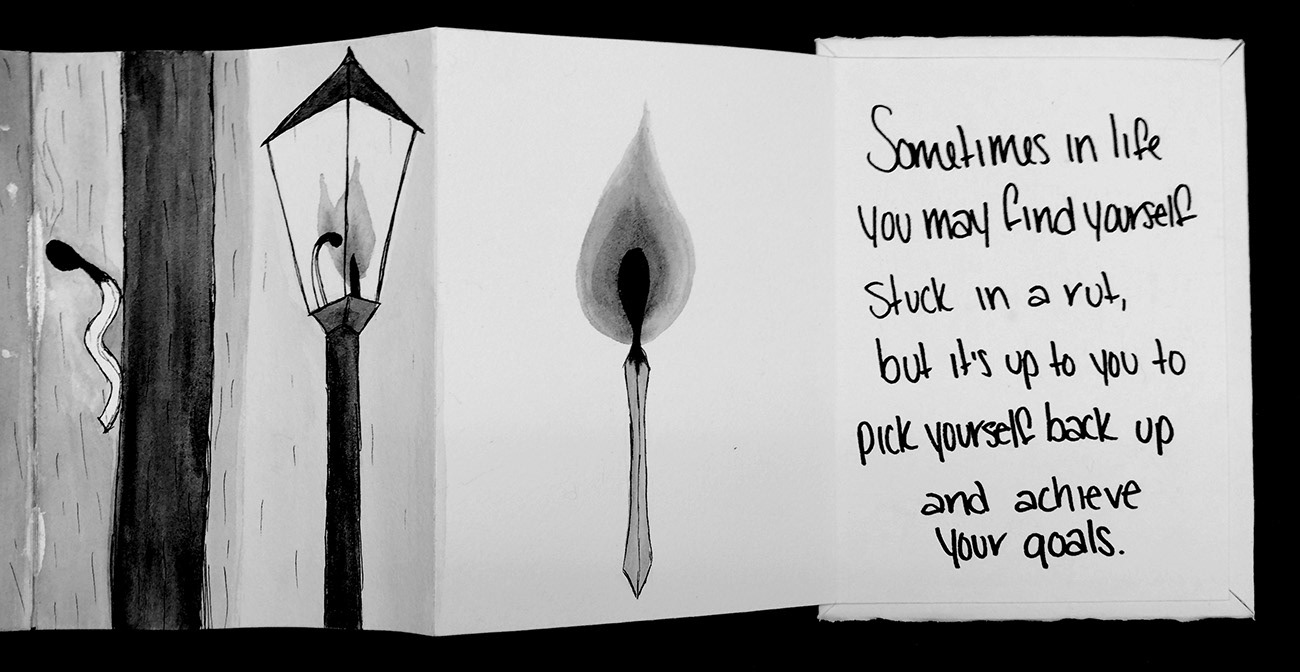 Sometimes in life
you may find yourself
stuck in a rut,
but it's up to you to
pick yourself back up
and achieve
your goals.